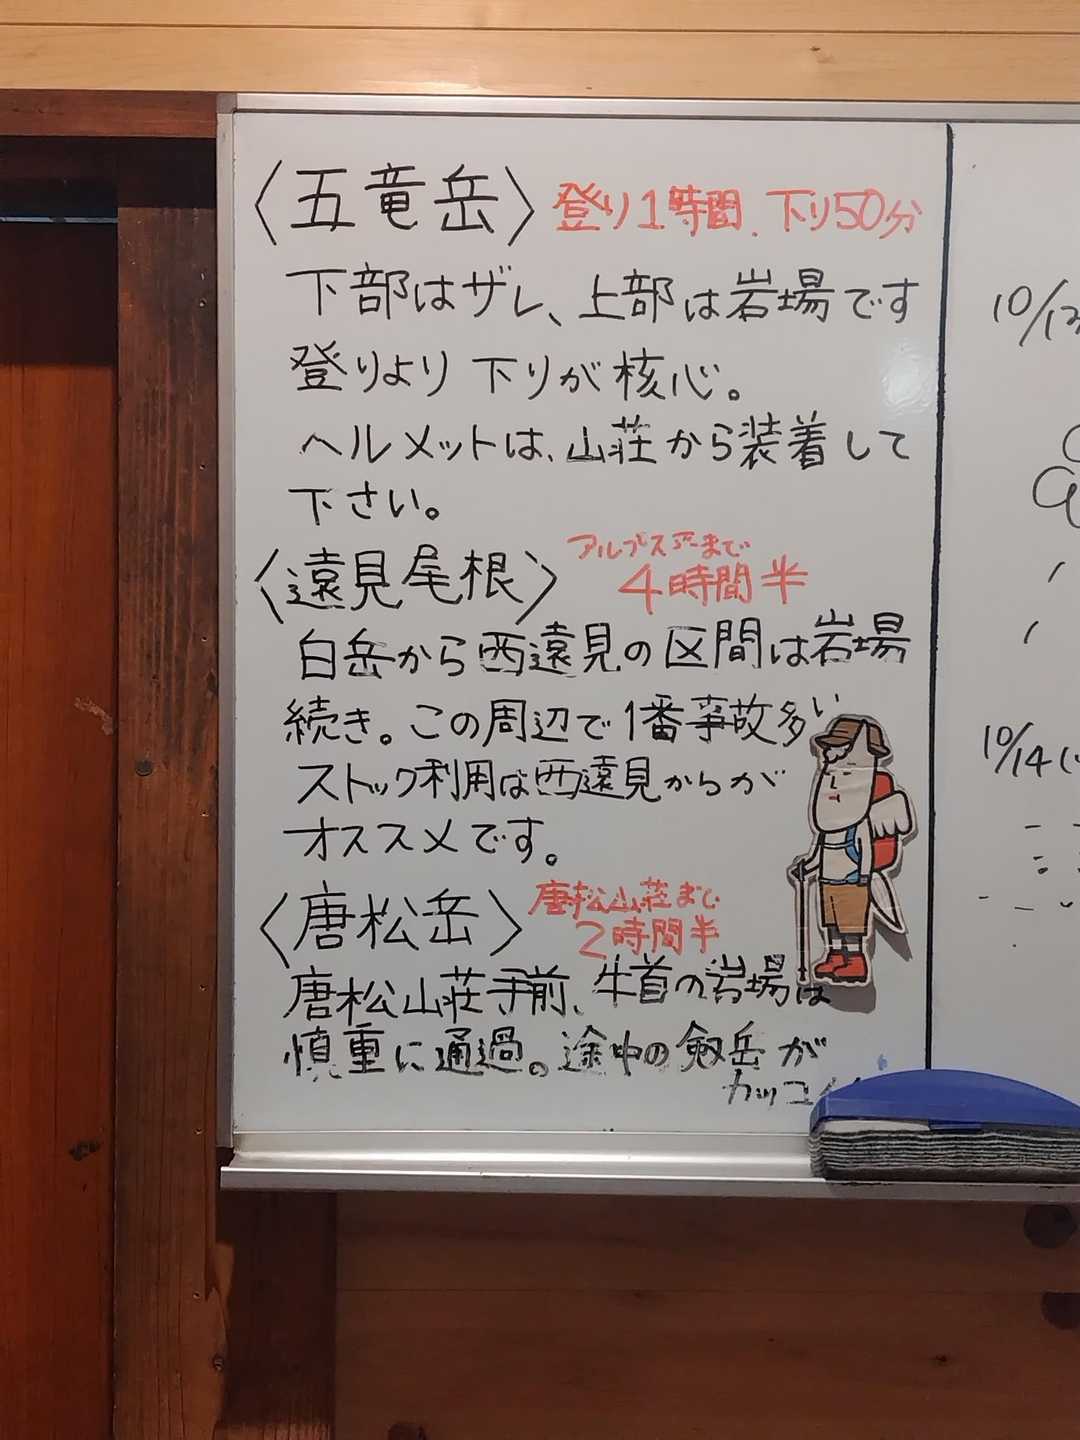 〈五竜岳〉 登り1時間、下り50分
下部はザレ、上部は岩場です
登りより下りが核心。
ヘルメットは、山荘から装着して
下さい。
〈遠見尾根〉 アルプス平まで
4時間半
白岳から西遠見の区間は岩場
続き。この周辺で1番事故多い
ストック利用は西遠見からが
オススメです。
〈唐松岳〉 唐松山荘まで
2時間半
唐松山荘手前、牛首の岩場は
慎重に通過。途中の剱岳が
カッコ
10/12
10/14